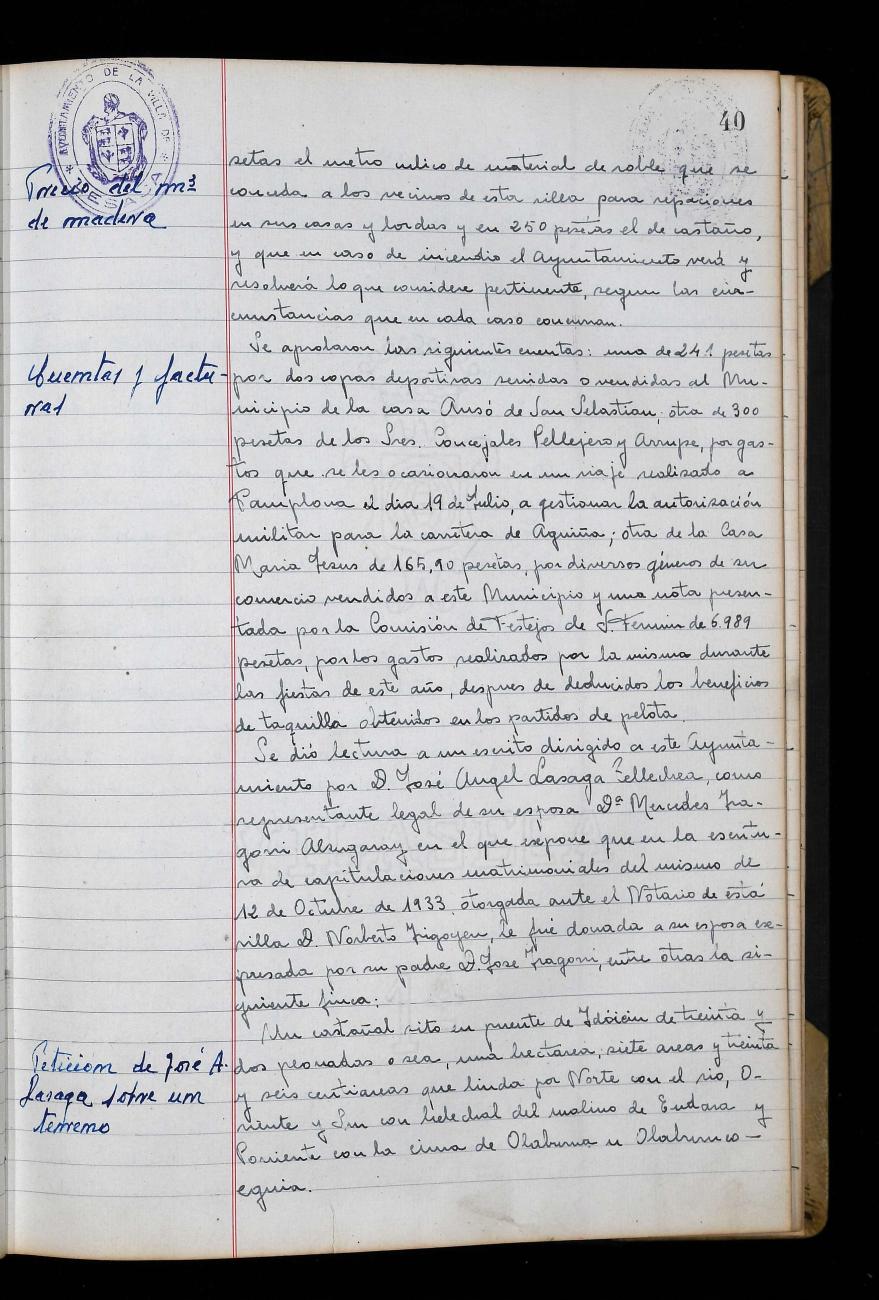 40
AYUNTAMIENTO DE LA VILLA DE
LESACA
Precio del m³
de madera
setas el metro cubico de material de roble que se
conceda a los vecinos de esta villa para reparciones
en sus casas y bordas y en 250 pesetas el de castaño,
y que en caso de incendio el Ayuntamiento verá y
resolverá lo que considere pertinente, segun las cir-
cunstancias que en cada caso concurran.
Cuentas y factu-
ras
Se aprobaron las siguientes cuentas: una de 241 pesetas
por dos copas deportivas servidas o vendidas al Mu-
nicipio de la casa Ansó de San Sebastian; otra de 300
pesetas de los Sres. Concejales Pellejero y Arrupe, por gas-
tos que se les ocasionaron en un viaje realizado a
Pamplona el dia 19 de Julio, a gestionar la autorización
militar para la carretera de Aguiña; otra de la Casa
Maria Jesus de 165,90 pesetas, por diversos géneros de su
comercio vendidos a este Municipio y una nota presen-
tada por la Comisión de Festejos de S. Fermin de 6.989
pesetas, por los gastos realizados por la misma durante
las fiestas de este año, despues de deducidos los beneficios
de taquilla obtenidos en los partidos de pelota.
Se dió lectura a un escrito dirigido a este Ayunta-
miento por D. José Angel Lasaga Tellechea, como
representante legal de su esposa Dª Mercedes Ira-
goni Alzugaray en el que expone que en la escritu-
ra de capitulaciones matrimoniales del mismo de
12 de Octubre de 1933, otorgada ante el Notario de esta
villa D. Norberto Irigoyen, le fué donada a su esposa ex-
presada por su padre D. Jose Iragoni, entre otras la si-
guiente finca:
Peticion de José A.
Lasaga sobre un
terreno
Un castañal sito en puente de Idoicin de treinta y
dos peonadas o sea, una hectarea, siete areas y treinta
y seis centiareas que linda por Norte con el rio, O-
riente y Sur con helechal del molino de Endara y
Poniente con la cima de Olaburua u Olaburuco-
eguia.